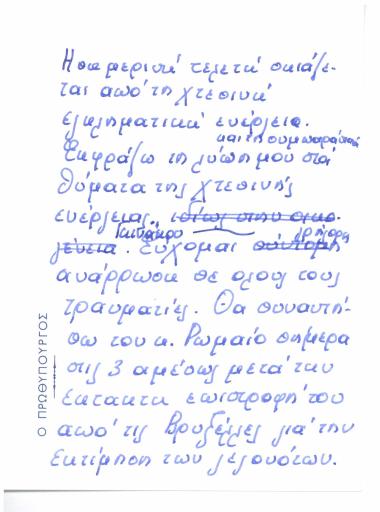 Η σημερινή τελετή σκιάζε-
ται από τη χτεσινή
εγκληματική ενέργεια.
και τη συμπαράσταση
Εκφράζω τη λύπη μου στα
θύματα της χτεσινής
ενέργειας, ιδίως στην οικο-
γένεια. Εύχομαι σύντομη
γρήγορη
ανάρρωση σε όλους τους
τραυματίες. Θα συναντή-
σω τον κ. Ρωμαίο σήμερα
στις 3 αμέσως μετά την
έκτακτη επιστροφή του
από τις Βρυξέλλες για την
εκτίμηση των γεγονότων.
Ο ΠΡΩΘΥΠΟΥΡΓΟΣ